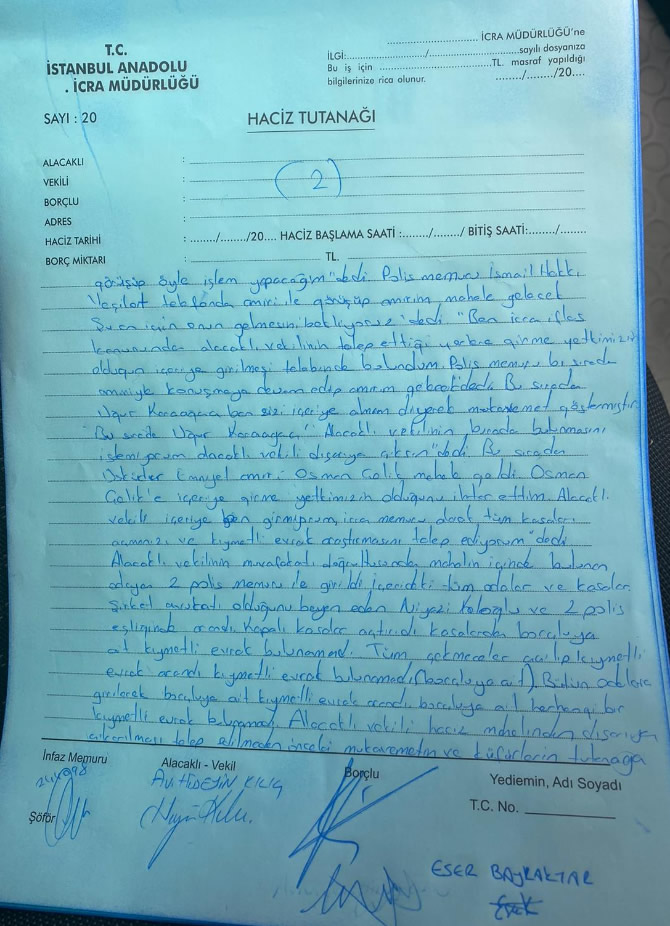 T.C.
İSTANBUL ANADOLU
. İCRA MÜDÜRLÜĞÜ
........................ İCRA MÜDÜRLÜĞÜ'ne
İLGİ:......................../........................sayılı dosyanıza
Bu iş için ........................TL. masraf yapıldığı
bilgilerinize rica olunur. ......./......./20....
SAYI : 20
HACİZ TUTANAĞI
ALACAKLI :
VEKİLİ : (2)
BORÇLU :
ADRES :
HACİZ TARİHİ : ......./......./20.... HACİZ BAŞLAMA SAATİ :......./......./ BİTİŞ SAATİ:......./.......
BORÇ MİKTARI : TL.
görüşüp öyle işlem yapacağım" dedi. Polis memuru İsmail Hakkı
telefonda amiri ile görüşüp amirim mahele gelecek
için onun gelmesini bekliyoruz" dedi "Ben icra iflas
kanununda alacaklı vekilinin talep ettiği yerlere girme yetkimizin
olduğun içeriye girilmesi talebinde bulundum. Polis memuru bu sırada
amiriyle konuşmaya devam edip amirim gelecek dedi. Bu sırada
Uğur Kocaağaca ben sizi içeriye almam diyerek mukavemet göstermiştir.
Bu sırada Uğur Kocaağaca "Alacaklı vekilinin burada bulunmasını
istemiyorum alacaklı vekili dışarıya çıksın" dedi. Bu sırada
Üsküdar Emniyet amiri Osman Çalık mahele geldi. Osman
Çalık'e içeriye girme yetkimizin olduğunu ihtar ettim. Alacaklı
vekili içeriye ben girmiyorum, icra memuru olarak tüm kasaları
açmanızı ve kıymetli evrak araştırmasını talep ediyorum" dedi.
Alacaklı vekilinin muvafakatı doğrultusunda mahalin içinde bulunan
2 polis memuru ile girildi içerideki tüm odalar ve kasalar
Şirket avukatı olduğunu beyan eden Niyazi ve 2 polis
eşliğinde arandı. Kapalı kasalar açtırıldı kasalardan borçluya
ait kıymetli evrak bulunamadı. Tüm çekmeceler açılıp kıymetli
evrak arandı kıymetli evrak bulunamadı (borçluya ait). Bütün odalara
girilerek borçluya ait kıymetli evrak arandı borçluya ait herhangi bir
kıymetli evrak bulunamadı. Alacaklı vekili haciz mahalinden dışarıya
çıkarılması talep edilmeden önceki mukavemetin ve küfürlerin tutanağa
İnfaz Memuru Alacaklı - Vekil Borçlu Yediemin, Adı Soyadı
Av. HÜSEYİN KILIÇ
Şöför
T.C. No.
ESER BAYRAKTAR